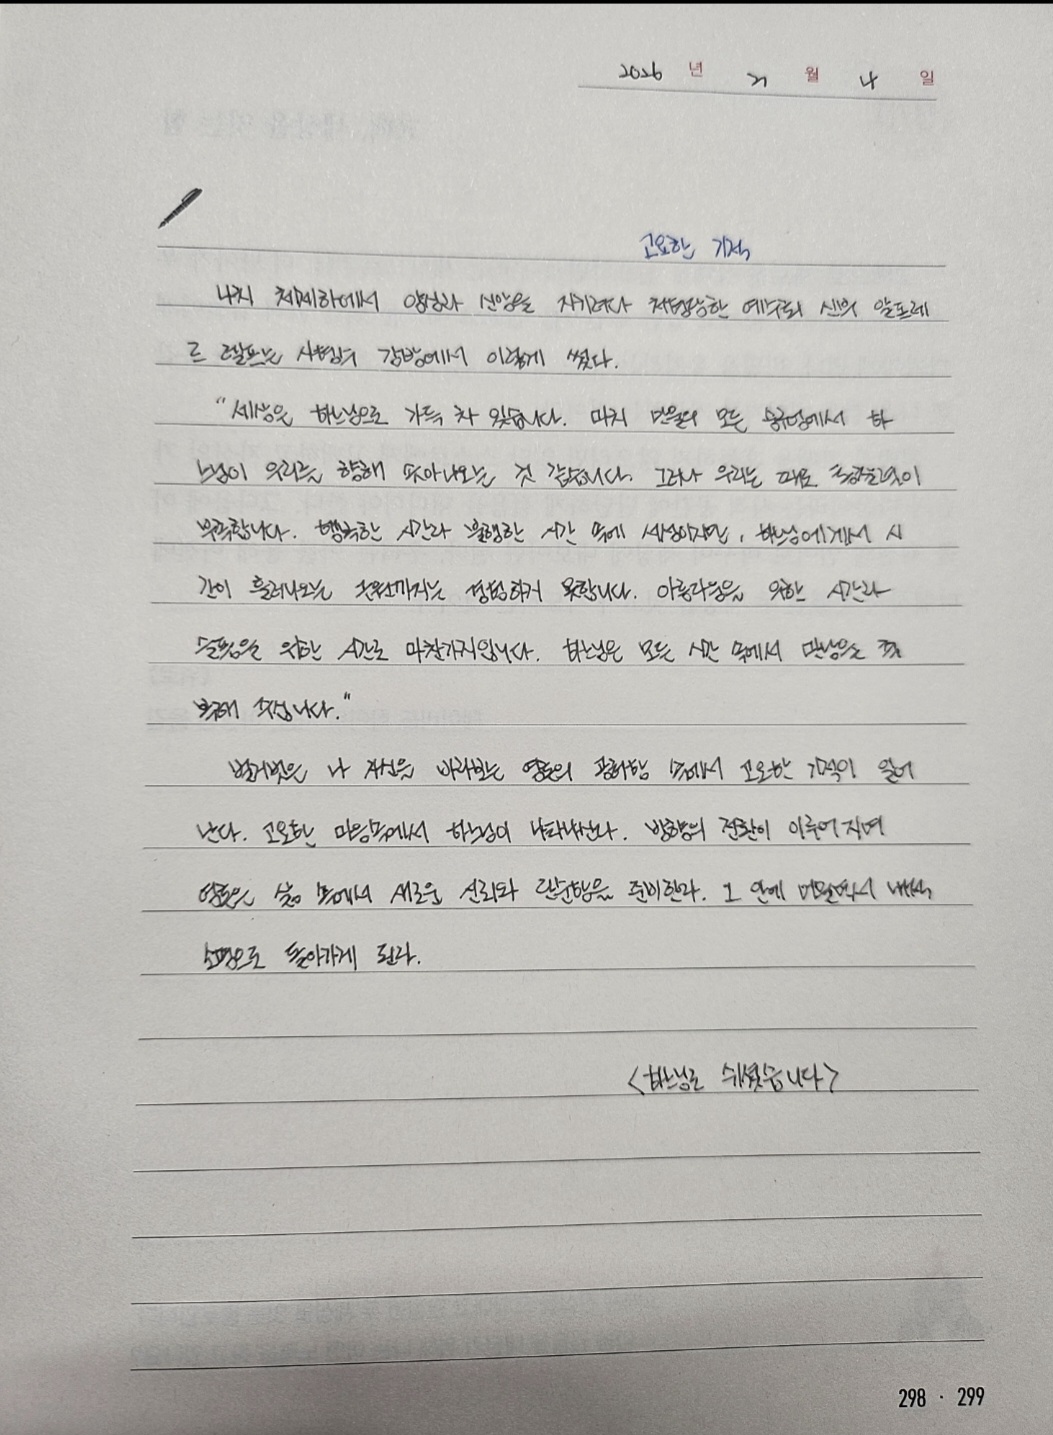 2026 년 21 월 4 일
고요한 기적
나치 체제하에서 양심과 신앙을 지키려다 처형당한 예수회 신부 알프레
드 델프는 사형수 감방에서 이렇게 썼다.
"세상은 하느님으로 가득 차 있습니다. 마치 만물의 모든 숨구멍에서 하
느님이 우리를 향해 솟아나오는 것 같습니다. 그러나 우리는 때로 통찰력이
부족합니다. 행복한 시간과 불행한 시간 속에 서성이지만, 하느님에게서 시
간이 흘러나오는 근원까지는 경험하지 못합니다. 아름다움을 위한 시간과
슬픔을 위한 시간도 마찬가지입니다. 하느님은 모든 시간 속에서 만남을 축
복해 주십니다."
벌거벗은 나 자신을 바라보는 영혼의 광하함 속에서 고요한 기적이 일어
난다. 고요한 마음속에서 하느님이 나타나신다. 방향의 전환이 이루어지며
영혼은 삶 속에서 새로운 신뢰와 단순함을 준비한다. 그 안에 머물면서 내적
수평으로 돌아가게 된다.
<하느님도 쉬셨습니다>
298 · 299